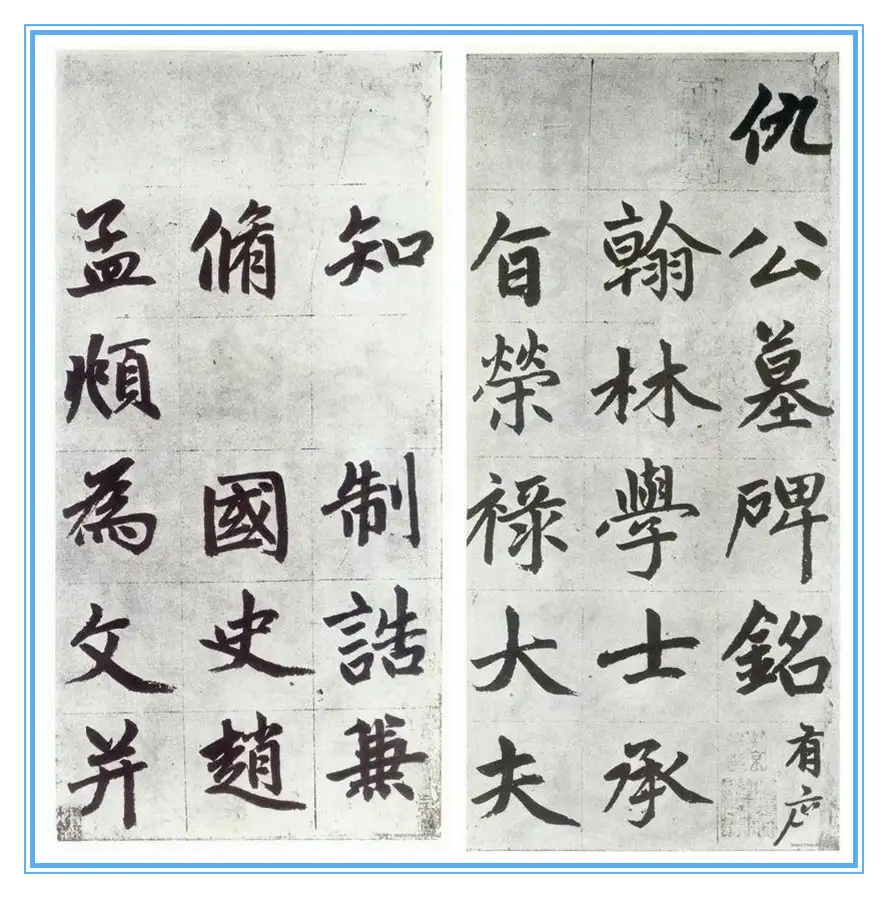 仇公墓碑銘有序
翰林學士承
旨榮祿大夫
知 制誥兼
脩 國史趙
孟頫為文并